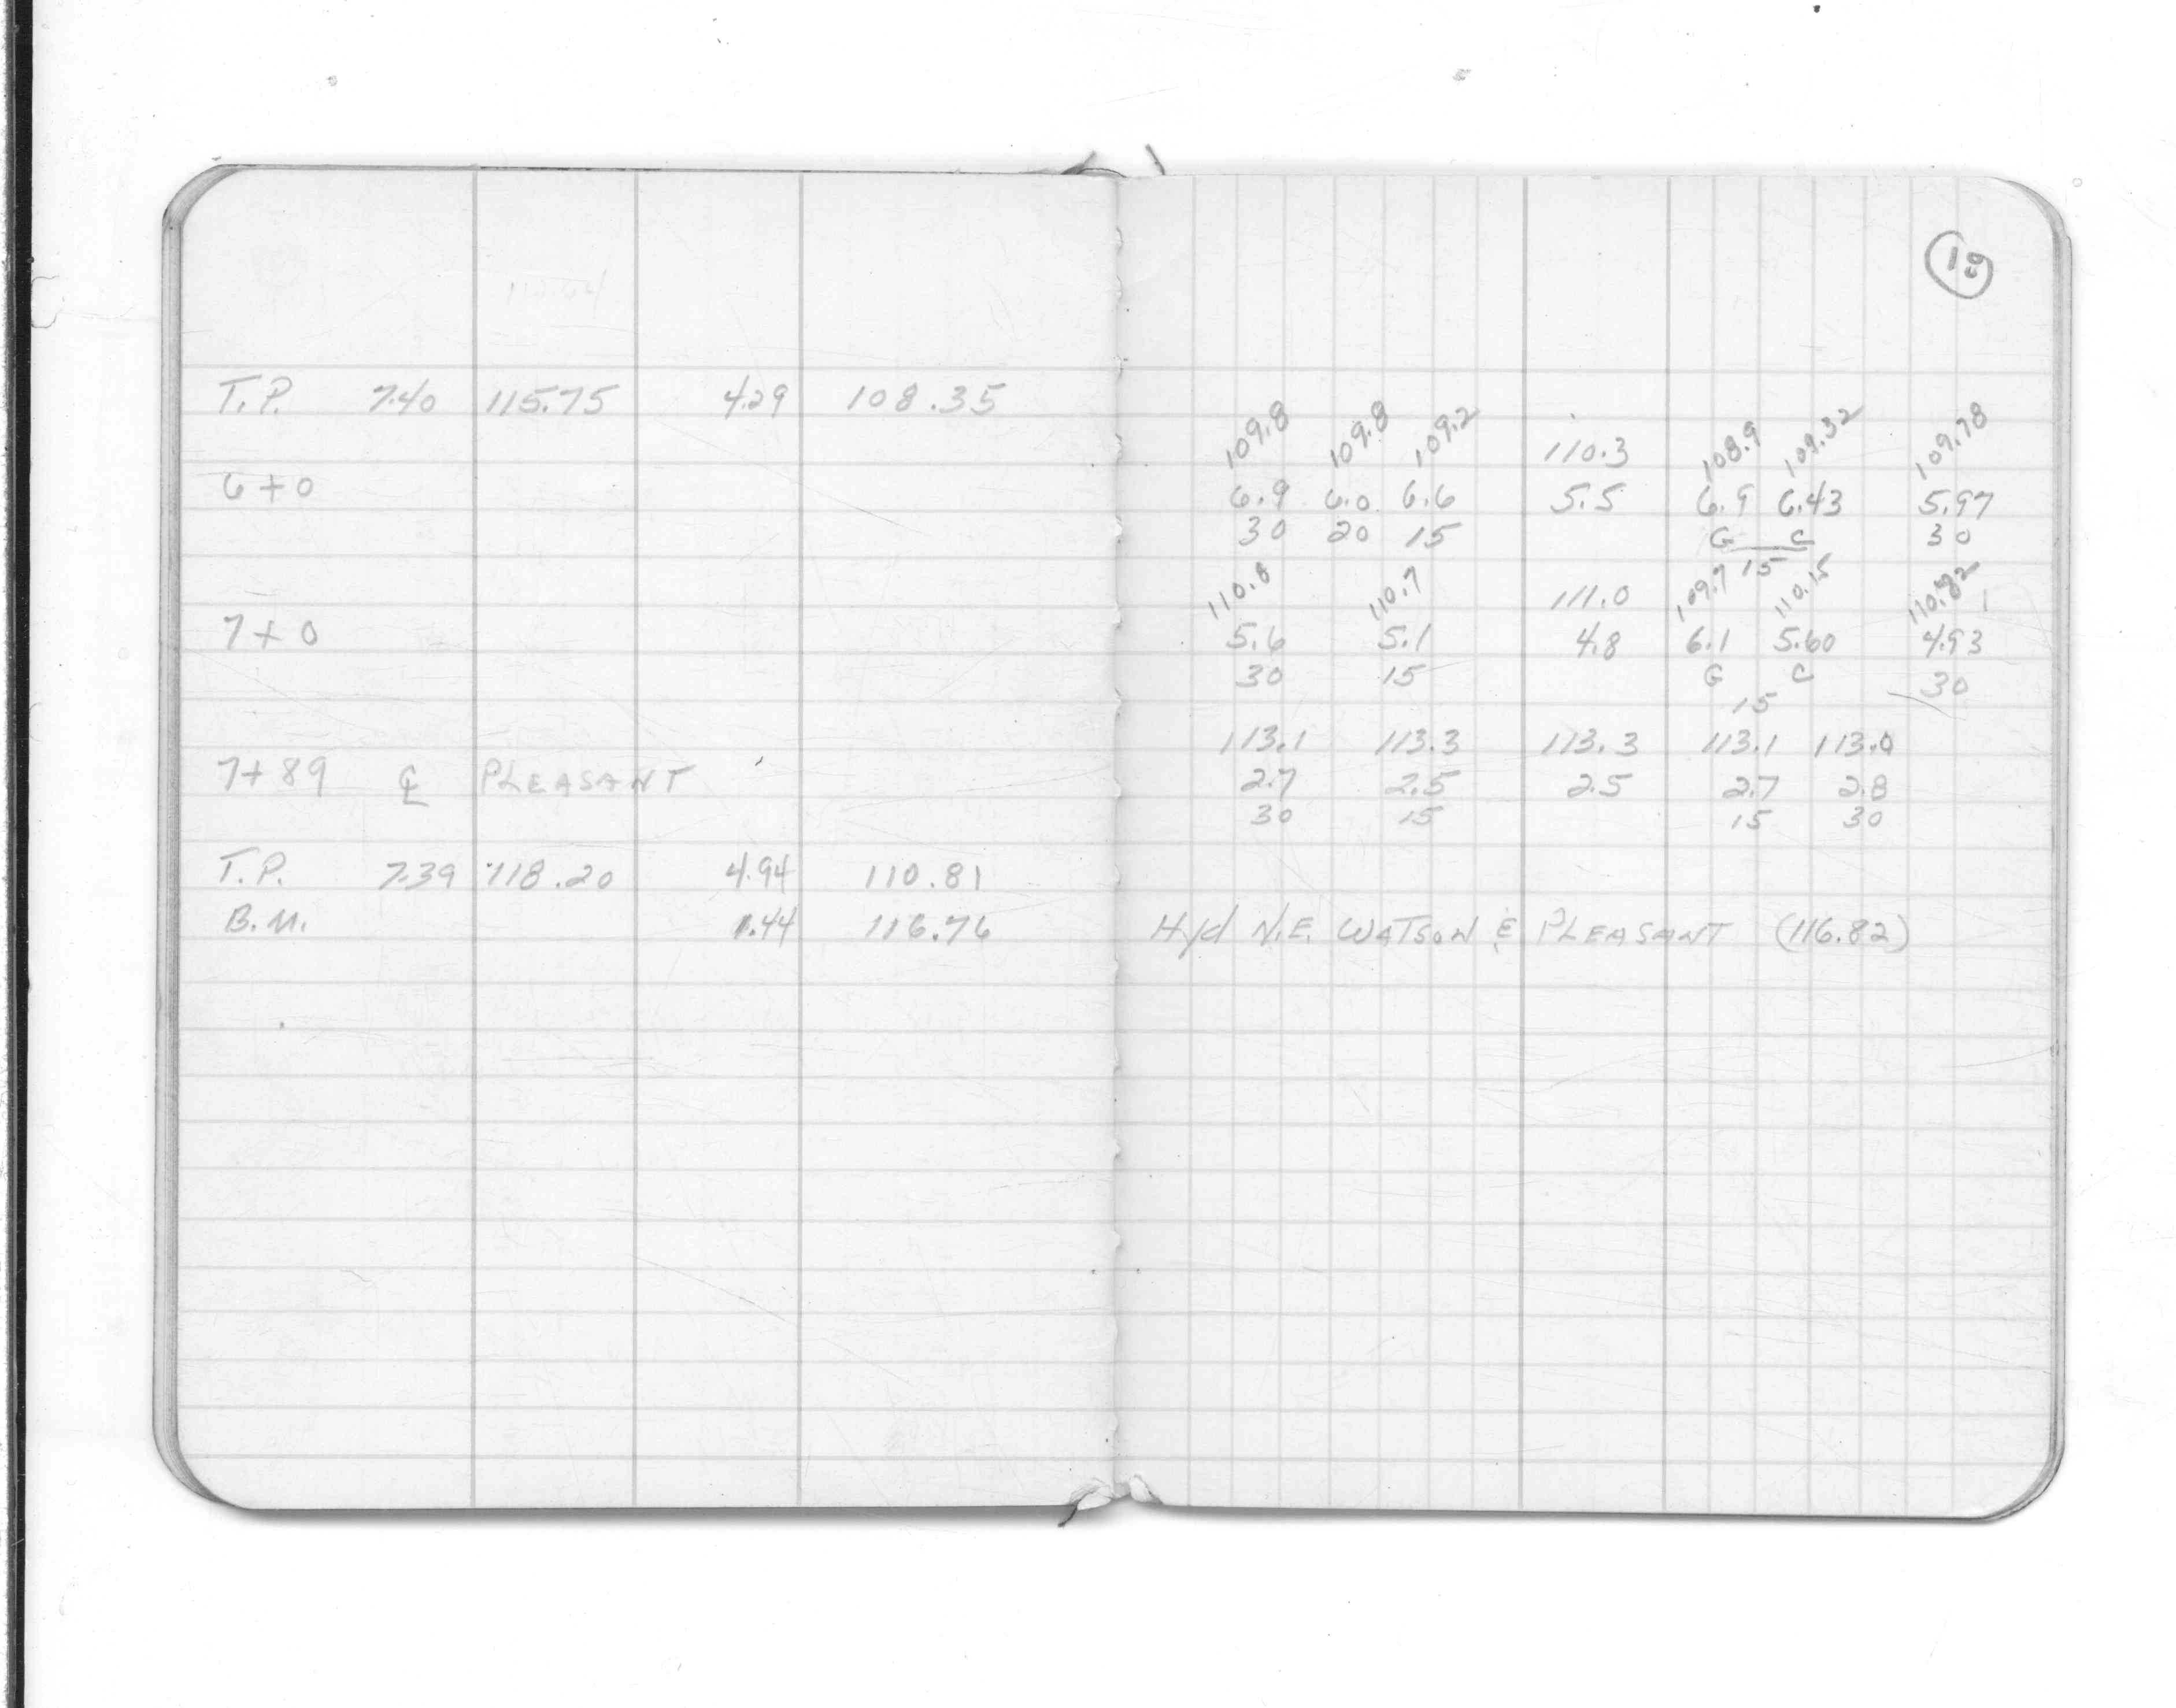 19
T.P. 7.40 115.75 4.29 108.35
109.8 109.8 109.2 110.3 108.9 109.32 109.78
6+0 6.9 6.0 6.6 5.5 6.9 6.43 5.97
30 20 15 G C 30
15
110.8 110.7 111.0 109.7 110.15 110.82
7+0 5.6 5.1 4.8 6.1 5.60 4.93
30 15 G C 30
15
113.1 113.3 113.3 113.1 113.0
7+89 ℄ PLEASANT 2.7 2.5 2.5 2.7 2.8
30 15 15 30
T.P. 7.39 118.20 4.94 110.81
B.M. 1.44 116.76 Hyd N.E. WATSON & PLEASANT (116.82)